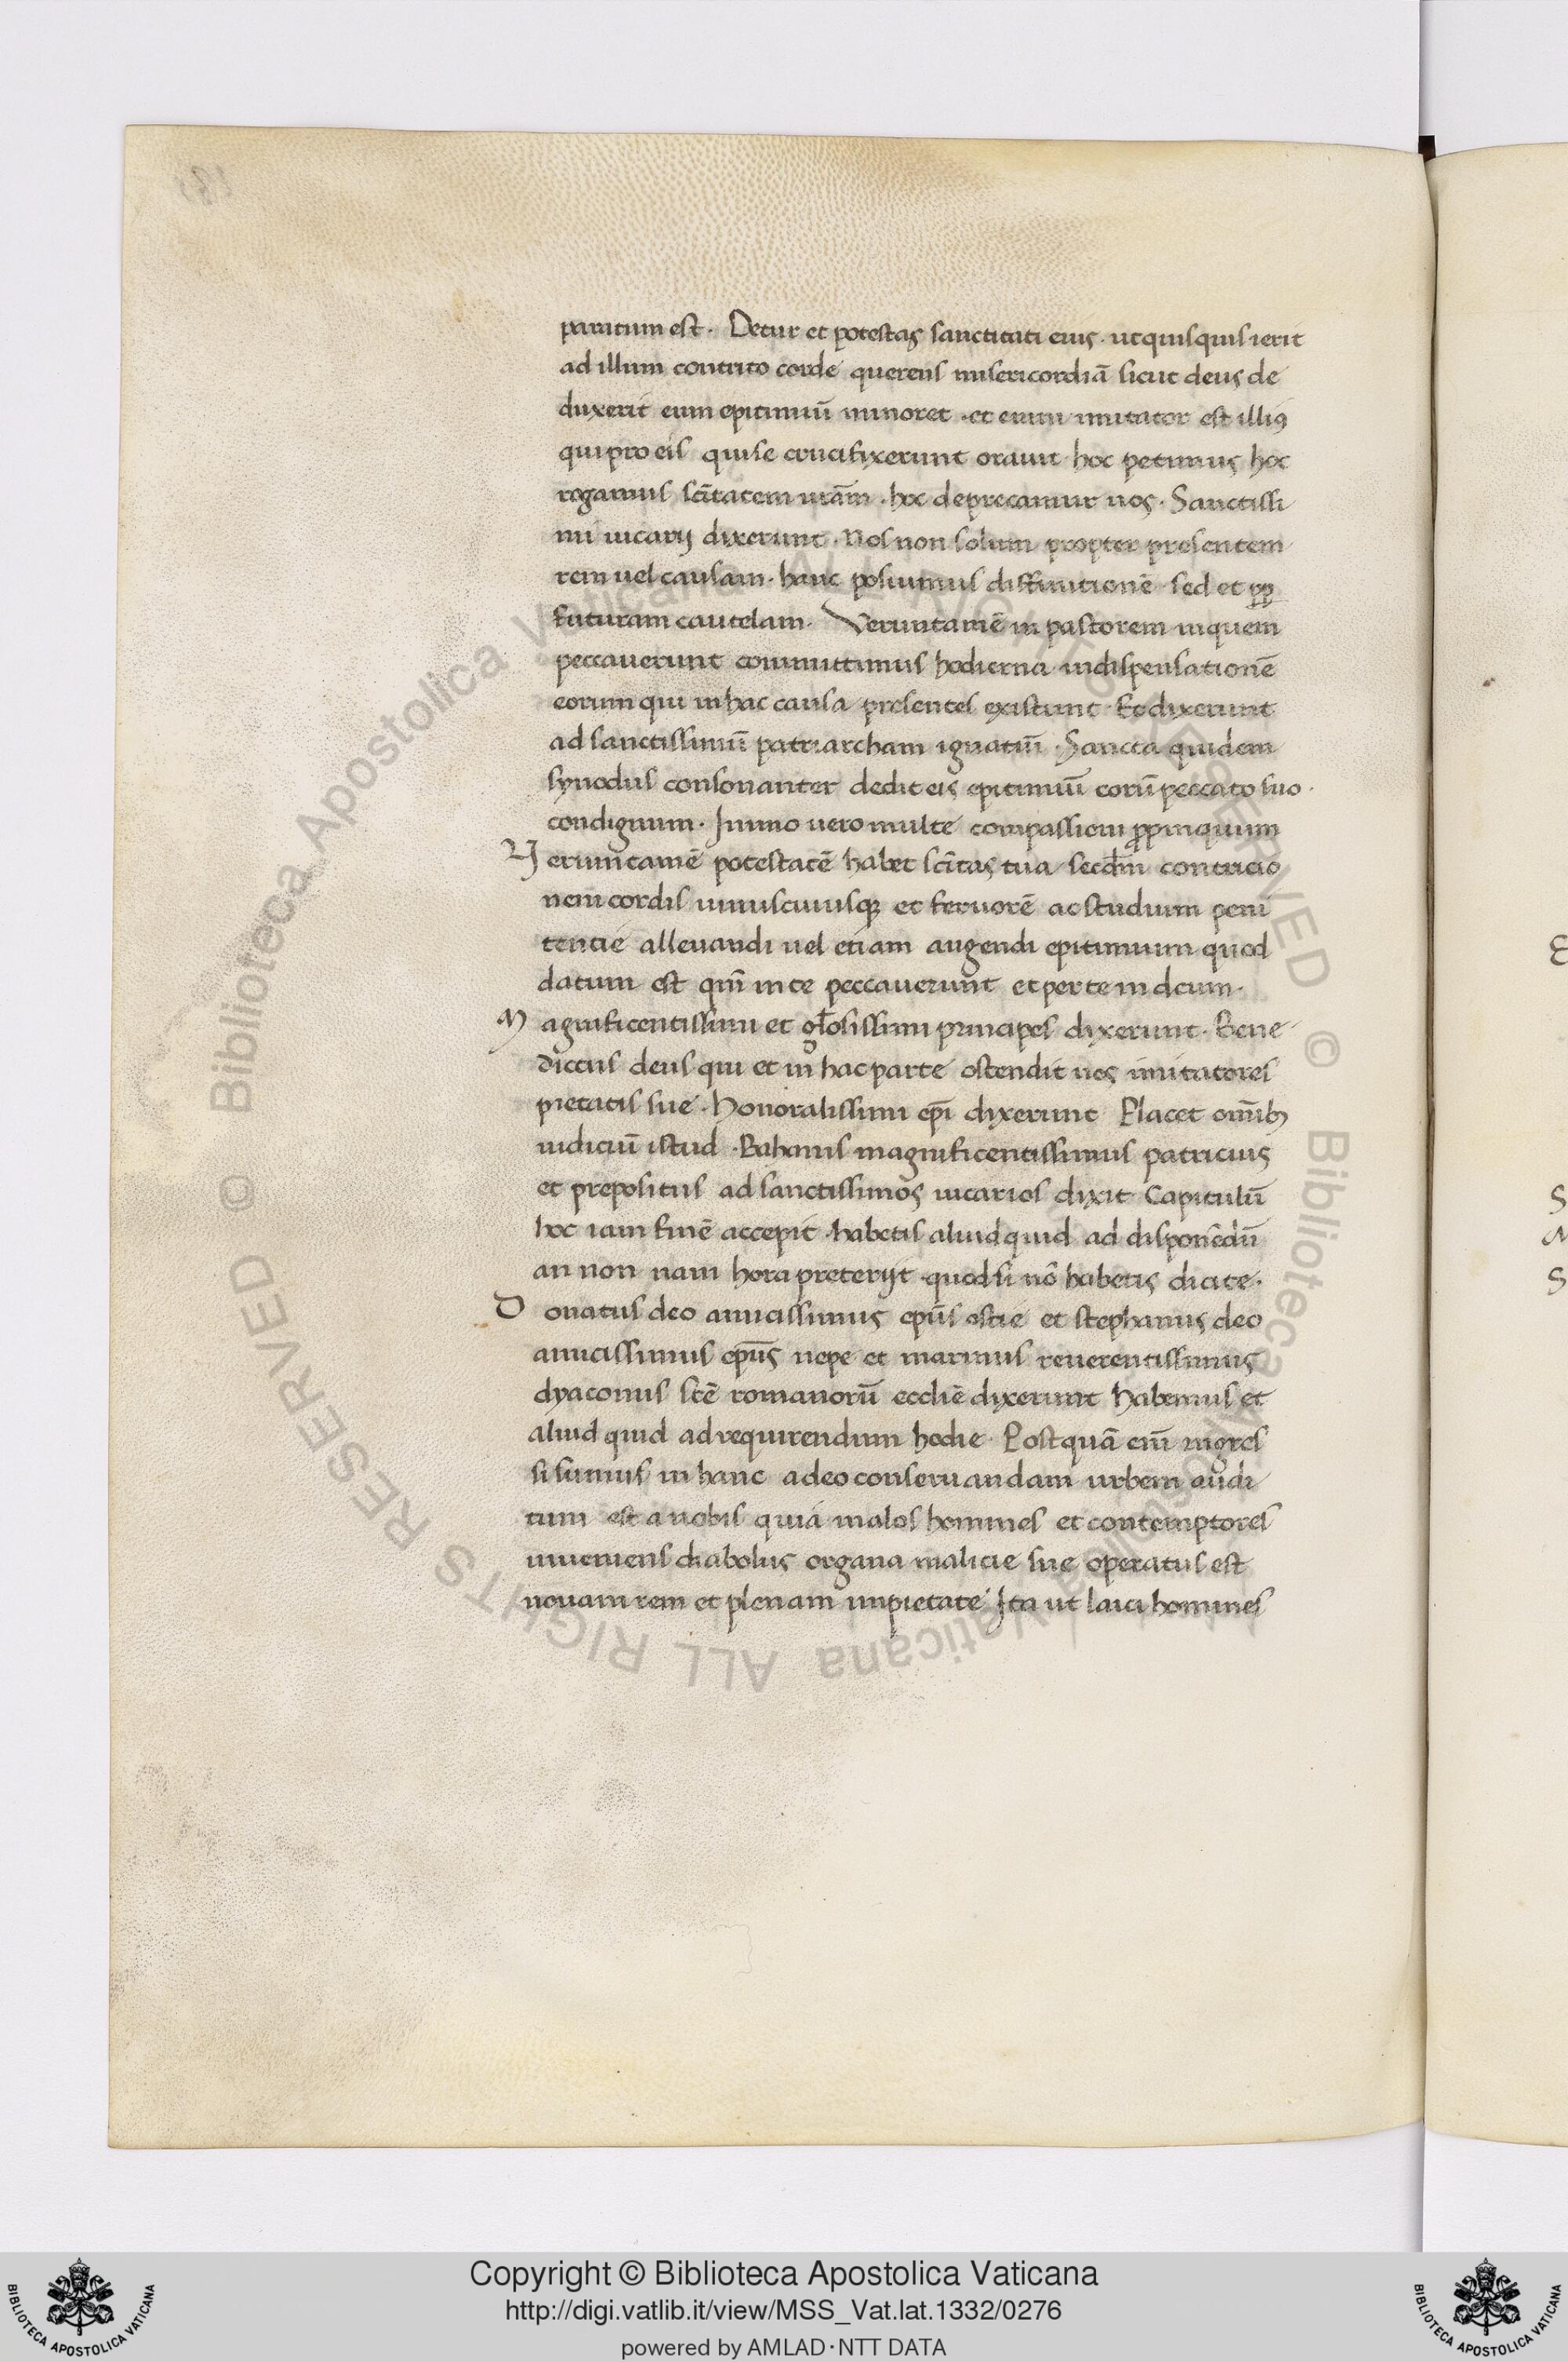 paratum est. Detur et potestas sanctitati eius. ut quisquis ierit
ad illum contrito corde querens misericordiā sicut deus de
duxerit eum epitimiū minoret. et enim imitator est illiꝰ
qui pro eis qui se crucifixerunt orauit hoc petimus hoc
rogamus scītatem urām. hoc deprecamur uos. Sanctissi
mi uicarij dixerunt. Nos non solum propter presentem
rem uel causam. hanc posuimus diffinitionē sed et pp
futuram cautelam. Veruntamē in pastorem in quem
peccauerunt committimus hodierna in dispensationē
eorum qui in hac causa presentes existunt. Et dixerunt
ad sanctissimū patriarcham ignatiū. Sancta quidem
synodus consonanter dedit eis epitimiū eorū peccato suo.
condignum. Immo uero multe compassioni ꝓpinquum
Veruntamē potestatē habet scītas tua secdm contricio
nem cordis uniuscuiusqꝫ et feruorē ac studium peni
tencie alleuandi uel etiam augendi epitimium quod
datum est qm̄ in te peccauerunt et per te in deum.
Magnificentissimi et glosissimi principes dixerunt. Bene
dictus deus qui et in hac parte ostendit uos imitatores
pietatis sue. Honoralissimi epi dixerunt Placet omībꝫ
iudiciū istud. Bahanis magnificentissimus patricius
et prepositus ad sanctissimos uicarios dixit Capitulū
hoc iam finē accepit. habetis aliud quid ad disponēdū
an non nam hora preterijt. quod si nō habetis dicite.
Donatus deo amicissimus epūs ostie et stephanus deo
amicissimus epūs nepe et marinus reuerentissimus
dyaconus scē romanorū ecclīe dixerunt Habemus et
aliud quid ad requirendum hodie. Postquā eni ingres
si sumus in hanc a deo conseruandam urbem audi
tum est a nobis quia malos homines et contemptores
inueniens diabolus organa malicie sue operatus est
nouam rem et plenam impietate Ita ut laici homines
Copyright © Biblioteca Apostolica Vaticana
http://digi.vatlib.it/view/MSS_Vat.lat.1332/0276
powered by AMLAD·NTT DATA